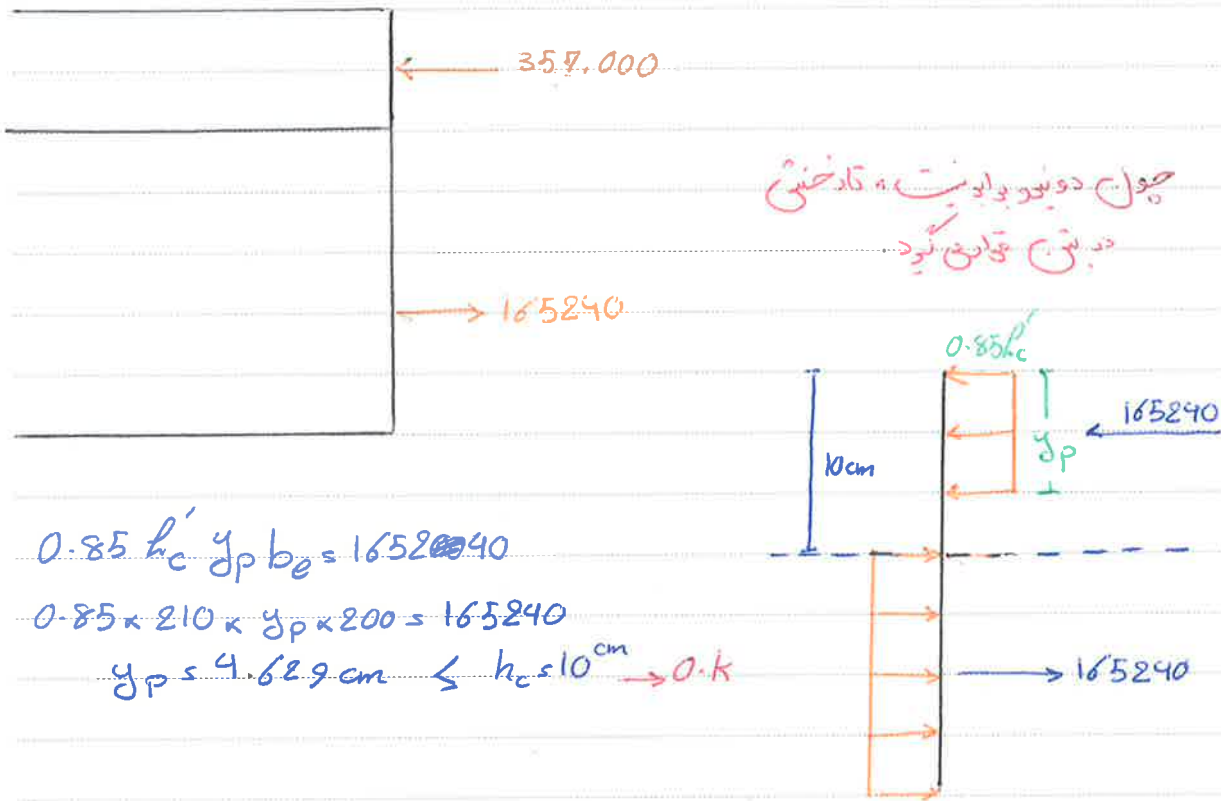 357.000
چون دو نیرو برابر نیست، تار خنثی
در بتن قرار می گیرد
165240
0.85f'c
165240
yp
10cm
0.85 f'c yp be = 165240
0.85 × 210 × yp × 200 = 165240
yp = 4.629 cm < hc = 10 cm → O.K
165240